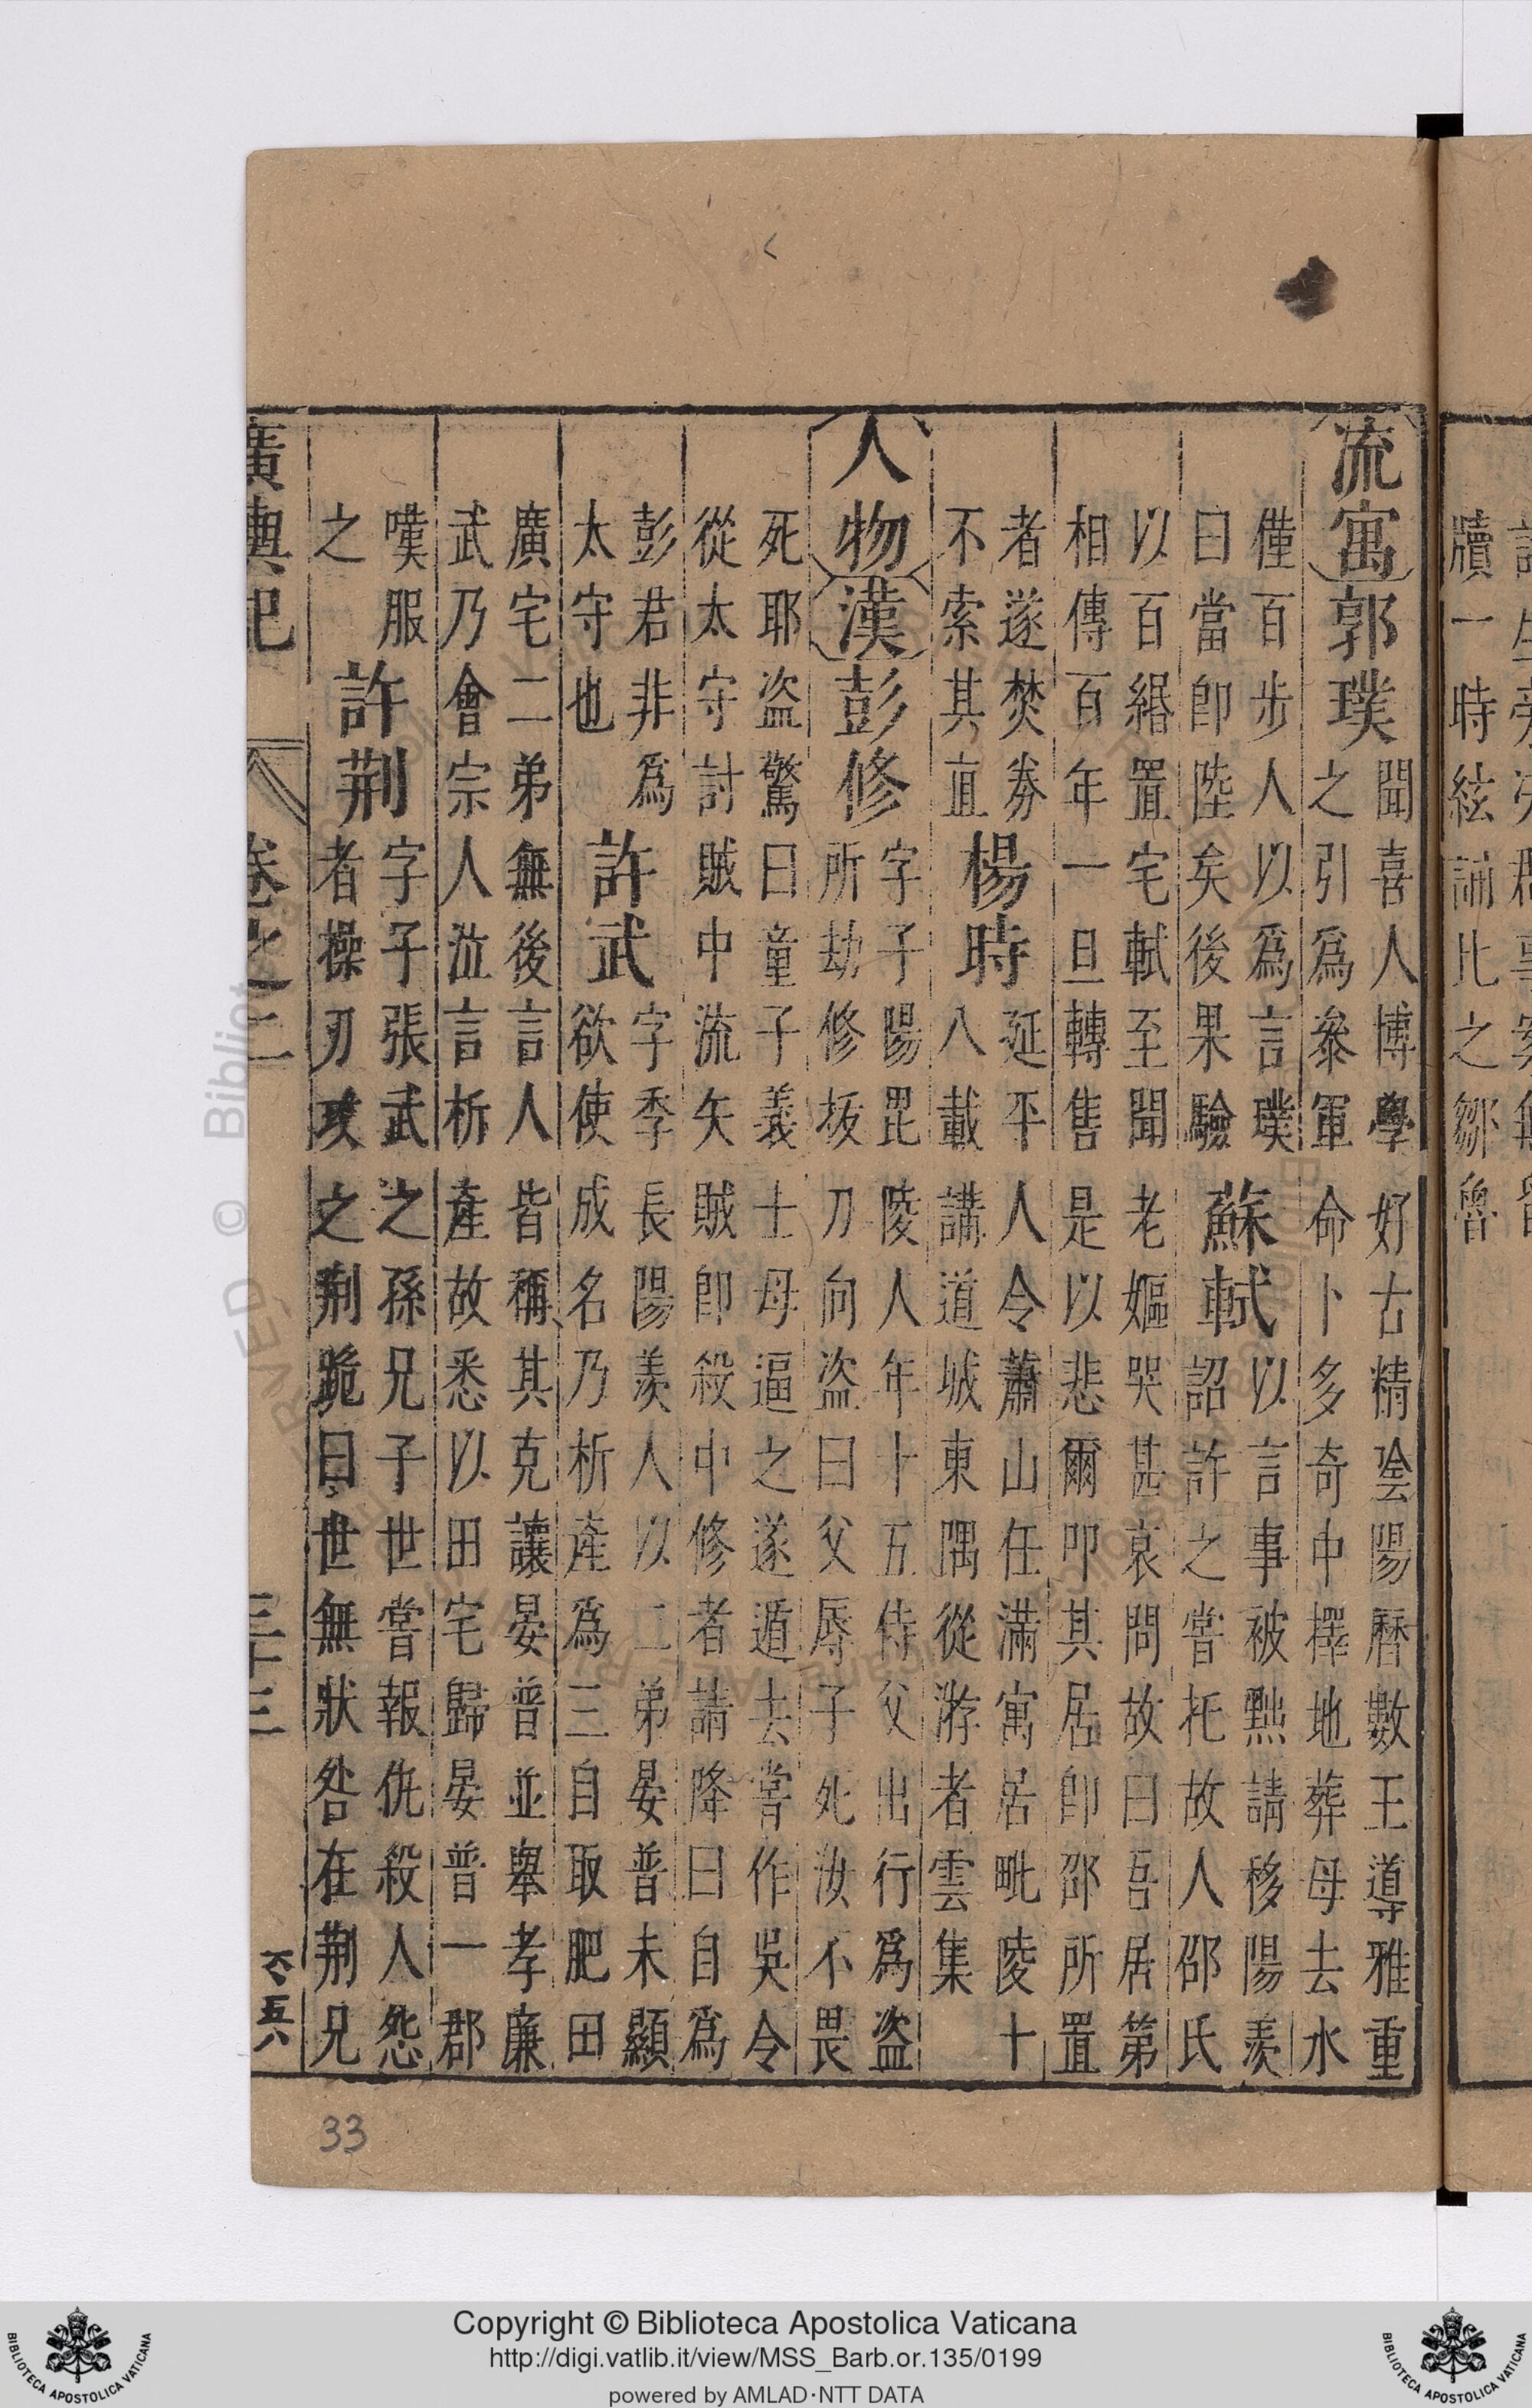 牘一時絃誦比之鄒魯
流寓郭璞聞喜人博學好古精陰陽曆數王導雅重
之引爲叅軍命卜多奇中擇地葬母去水
僅百步人以爲言璞
曰當卽陸矣後果驗
蘇軾以言事被黜請移陽羨
詔許之嘗托故人邵氏
以百緡置宅軾至聞老嫗哭甚哀問故曰吾居第
相傳百年一旦轉售是以悲爾叩其居卽邵所置
者遂焚劵
不索其直
楊時延平人令蕭山任滿寓居毗陵十
八載講道城東隅從游者雲集
人物漢彭修字子陽毘陵人年十五侍父出行爲盗
所劫修拔刀向盗曰父辱子死汝不畏
死耶盗驚曰童子義士毋逼之遂遁去嘗作吳令
從太守討賊中流矢賊卽殺中修者請降曰自爲
彭君非爲
太守也
許武字季長陽羨人以二弟晏普未顯
欲使成名乃析產爲三自取肥田
廣宅二弟無後言人皆稱其克讓晏普並舉孝廉
武乃會宗人泣言析產故悉以田宅歸晏普一郡
嘆服
之
許荆字子張武之孫兄子世嘗報仇殺人怨
者操刃攻之荆跪曰世無狀咎在荆兄
廣輿記
卷之二
三十三
33
Copyright © Biblioteca Apostolica Vaticana
http://digi.vatlib.it/view/MSS_Barb.or.135/0199
powered by AMLAD·NTT DATA
BIBLIOTECA APOSTOLICA VATICANA
BIBLIOTECA APOSTOLICA VATICANA